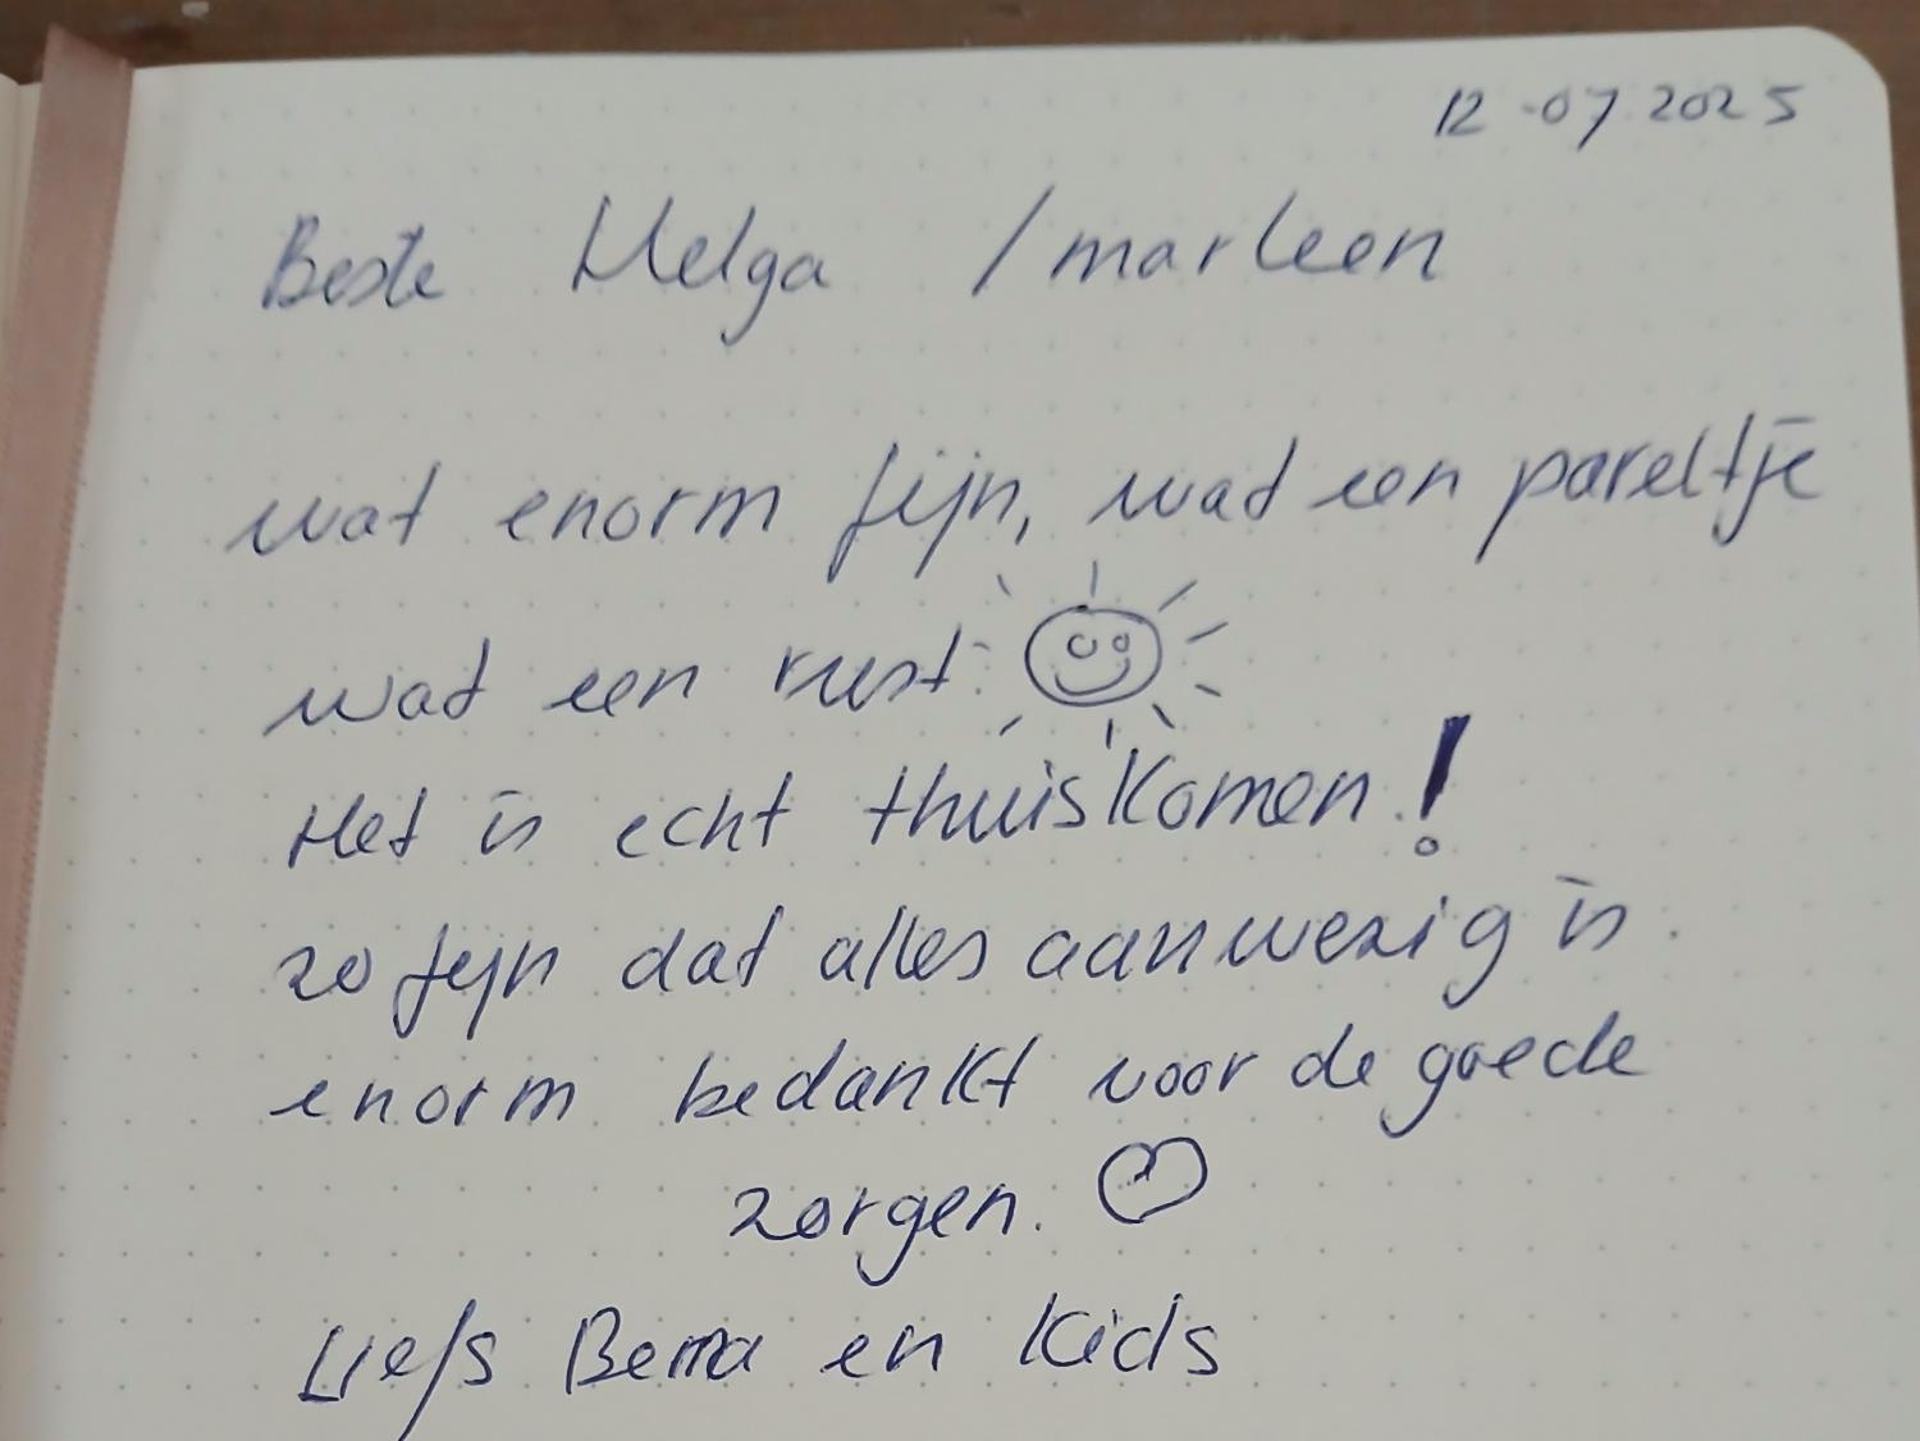 12-07-2025
Beste Helga / marleen
wat enorm fijn, wat een pareltje
wat een rust
Het is echt thuiskomen!
zo fijn dat alles aanwezig is.
enorm bedankt voor de goede
zorgen.
Liefs en Kids